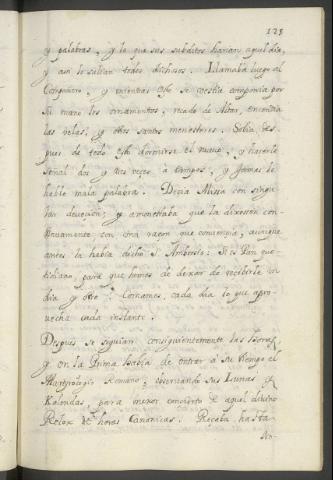 128
y palabras, y lo que sus subditos harian aquel dia,
y assi lo sabian todos dichosos. Llamaba luego al
Compañero, y mientras este se vestia componia por
su mano los ornamentos, recado de Altar, encendia
las velas, y otros santos menesteres. Solia des-
pues de todo esto dormirse el nuevo, y hacerle
señal dos y tres veces a tiempos, y jamas le
hable mala palabra. Decia Missa con singu-
lar devocion; y amonestaba que la dixesen con-
tinuamente con una razon que convencia, aunque
antes la habia dicho S. Ambrosio: Si es Pan quo-
tidiano, para que hemos de dexar de recibirle un
dia y otro? Comamos cada dia lo que apro-
vecha cada instante.
Despues se seguian consiguientemente las horas,
y en la Prima habia de entrar a su tiempo el
Martyrologio Romano, observando sus Lunas y
Kalendas, para mexor concierto de aquel divino
Relox de horas Canonicas. Rezaba hasta